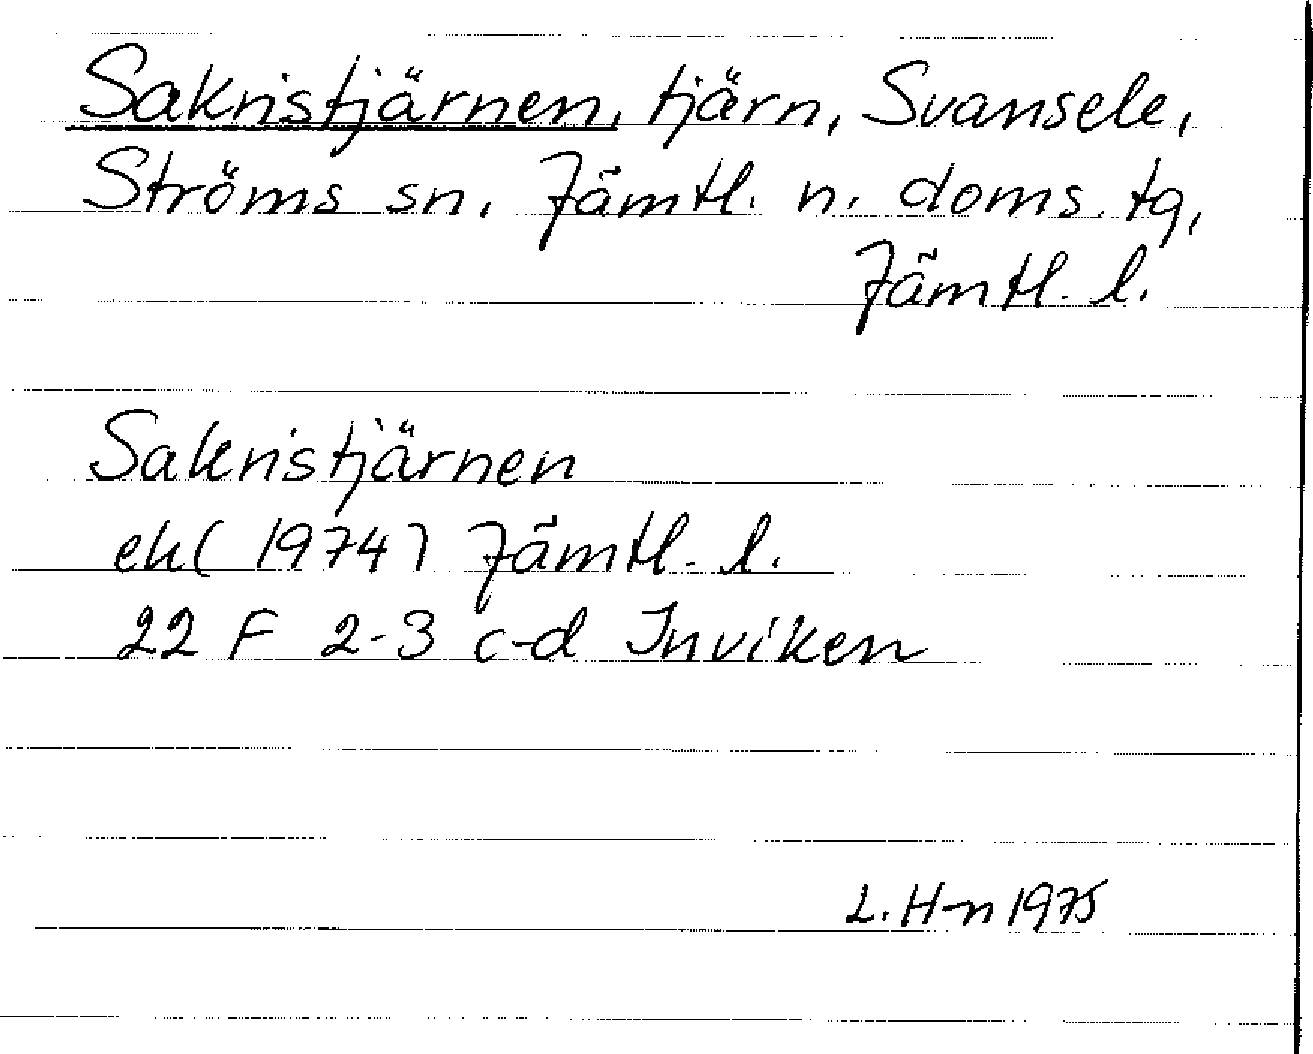 Sakristjärnen, tjärn, Svansele,
Ströms sn, Jämtl. n. doms. tg,
Jämtl. l.
Sakristjärnen
ek (1974) Jämtl. l.
22 F 2-3 c-d Inviken
L. H-n 1975